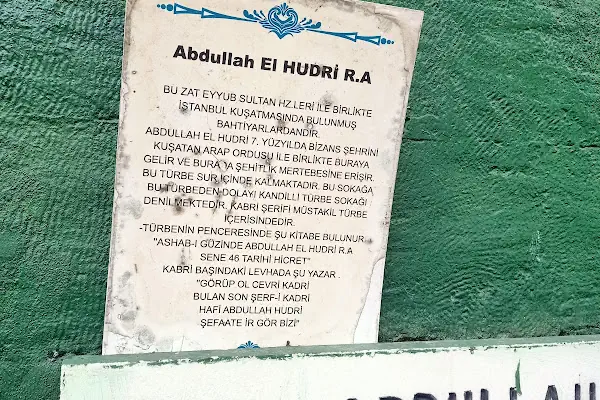 Abdullah El HUDRİ R.A
BU ZAT EYYUB SULTAN HZ.LERİ İLE BİRLİKTE
İSTANBUL KUŞATMASINDA BULUNMUŞ
BAHTİYARLARDANDIR.
ABDULLAH EL HUDRİ 7. YÜZYILDA BİZANS ŞEHRİNİ
KUŞATAN ARAP ORDUSU İLE BİRLİKTE BURAYA
GELİR VE BURAYA ŞEHİTLİK MERTEBESİNE ERİŞİR.
BU TÜRBE SUR İÇİNDE KALMAKTADIR. BU SOKAĞA
BU TÜRBEDEN DOLAYI KANDİLLİ TÜRBE SOKAĞI
DENİLMEKTEDİR. KABRİ ŞERİFİ MÜSTAKİL TÜRBE
İÇERİSİNDEDİR.
-TÜRBENİN PENCERESİNDE ŞU KİTABE BULUNUR
"ASHAB-I GÜZİNDE ABDULLAH EL HUDRİ R.A
SENE 46 TARİHİ HİCRET"
KABRİ BAŞINDAKİ LEVHADA ŞU YAZAR .
"GÖRÜP OL ÇEVRİ KADRİ
BULAN SON ŞERF-İ KADRİ
HAFİ ABDULLAH HUDRİ
ŞEFAATE İR GÖR BİZİ"
ABDULLAH